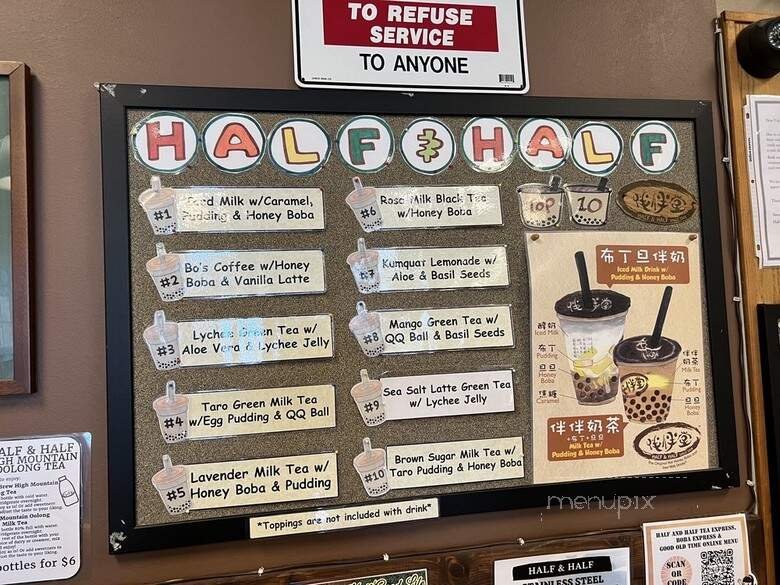 TO REFUSE
SERVICE
TO ANYONE
HALF & HALF
TOP 10
#1
Iced Milk w/Caramel,
Pudding & Honey Boba
#2
Bo's Coffee w/Honey
Boba & Vanilla Latte
#3
Lychee Green Tea w/
Aloe Vera & Lychee Jelly
#4
Taro Green Milk Tea
w/Egg Pudding & QQ Ball
#5
Lavender Milk Tea w/
Honey Boba & Pudding
#6
Rose Milk Black Tea
w/Honey Boba
#7
Kumquat Lemonade w/
Aloe & Basil Seeds
#8
Mango Green Tea w/
QQ Ball & Basil Seeds
#9
Sea Salt Latte Green Tea
w/ Lychee Jelly
#10
Brown Sugar Milk Tea w/
Taro Pudding & Honey Boba
*Toppings are not included with drink*
伴伴堂
HALF & HALF
布丁旦伴奶
Iced Milk Drink w/
Pudding & Honey Boba
Iced Milk
布丁
Pudding
旦旦
Honey
Boba
焦糖
Caramel
伴伴
奶茶
Milk Tea
布丁
Pudding
旦旦
Honey
Boba
伴伴奶茶
+布丁+旦旦
Milk Tea w/
Pudding & Honey Boba
伴伴堂
menupix
ALF & HALF
GH MOUNTAIN
OOLONG TEA
bottles for $6
HALF & HALF
STAINLESS STEEL
HALF AND HALF TEA EXPRESS,
BOBA EXPRESS &
GOOD OLD TIME ONLINE MENU
SCAN
QR